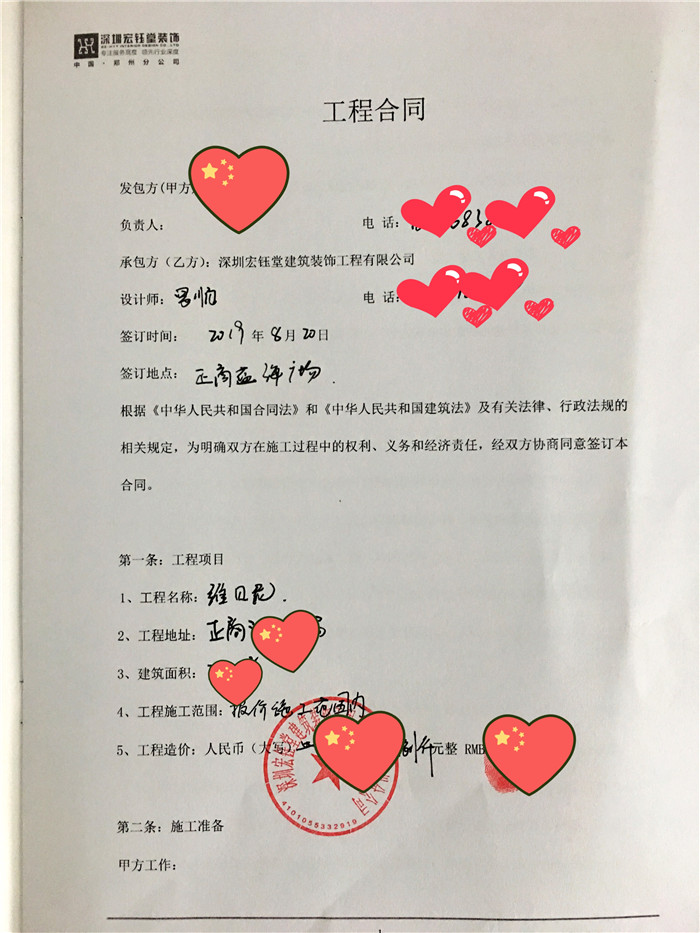 深圳宏钰堂装饰
专注服务商业 领先行业深度
中国·郑州分公司
工程合同
发包方(甲方)
负责人: 电 话: 838
承包方（乙方）: 深圳宏钰堂建筑装饰工程有限公司
设计师: 电 话:
签订时间: 2019年8月20日
签订地点: 正商蓝海广场.
根据《中华人民共和国合同法》和《中华人民共和国建筑法》及有关法律、行政法规的
相关规定，为明确双方在施工过程中的权利、义务和经济责任，经双方协商同意签订本
合同。
第一条: 工程项目
1、工程名称: 维贝尼.
2、工程地址: 正商
3、建筑面积:
4、工程施工范围: 报价施工范围内
5、工程造价: 人民币（大写） 元整 RMB
4101055332919
第二条: 施工准备
甲方工作: